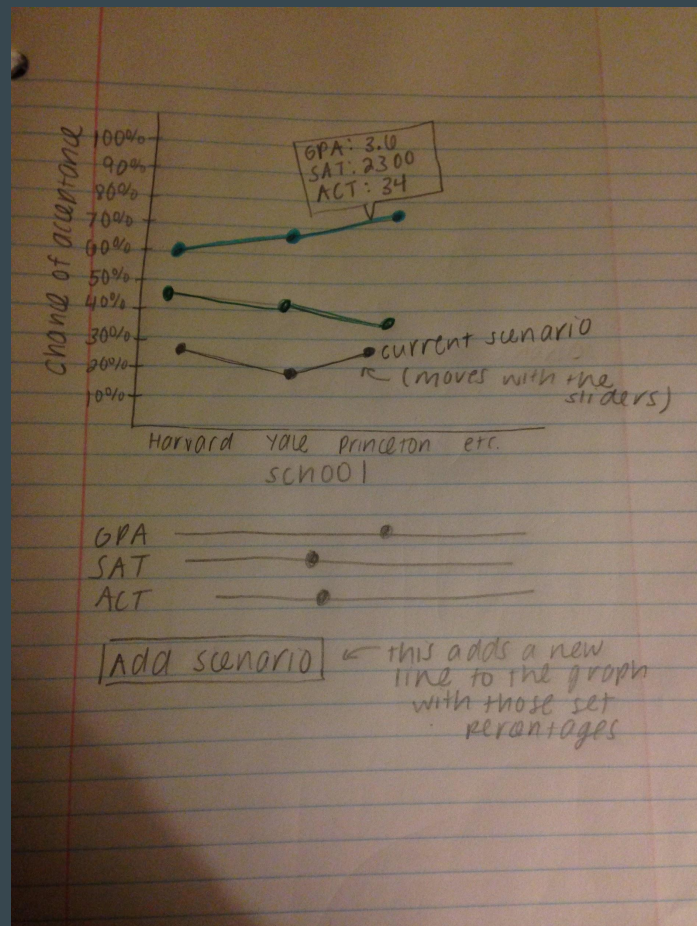 Chance of acceptance
100%
90%
80%
70%
60%
50%
40%
30%
20%
10%
GPA: 3.6
SAT: 2300
ACT: 34
current scenario
(moves with the
sliders)
Harvard Yale Princeton etc.
school
GPA
SAT
ACT
Add scenario
this adds a new
line to the graph
with those set
percntages